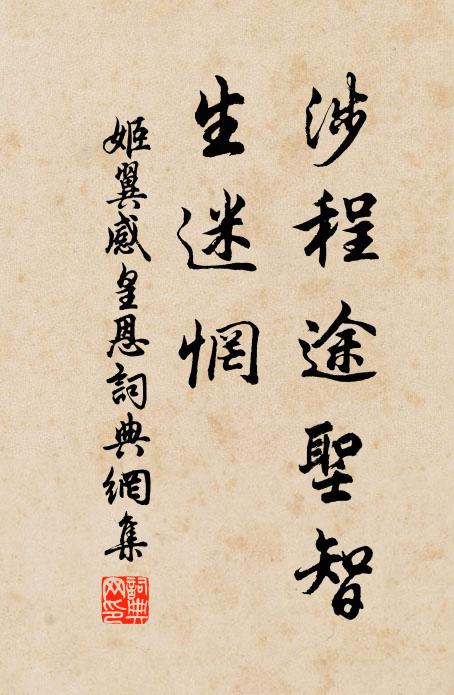 涉程途聖智
生迷惘
姬翼感皇恩詞典網集
詞典网印